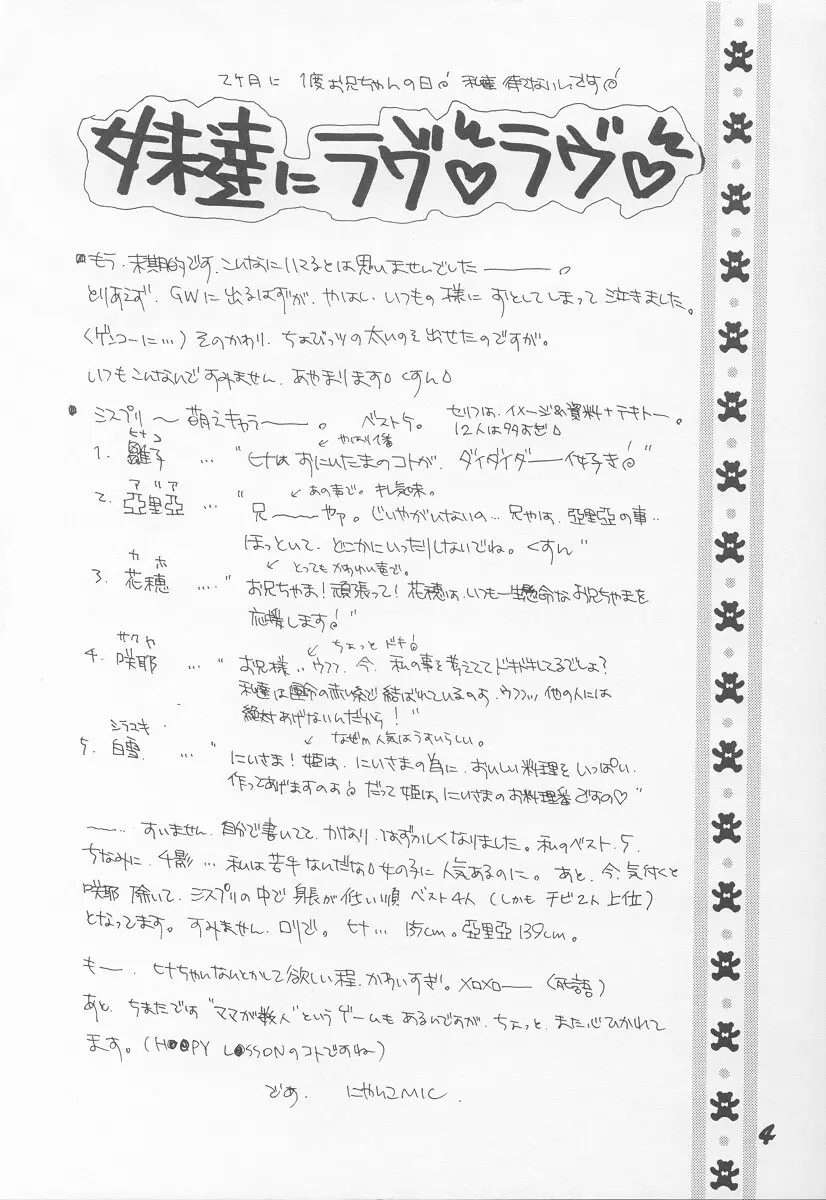 2ヶ月に 1度お兄ちゃんの日♂ 私達 待てないしですぅ♂
妹達にラヴ♡ラヴ♡
もう、末期的です。こんなにイってるとは思いませんでした———。
とりあえず、GWに出るはずが、やはし、いつもの様に おとしてしまって 泣きました。
(ゲンコーに…) そのかわり、ちょびっツの太いのを出せたのですが。
いつもこんなんですみません。あやまります。くすん。
ミスプリ〜萌えキャラ〜——。 ベスト5。 セリフは、イメージ&資料+テキトー。
12人は多すぎ。
ヒナコ
やはり1番
1. 雛子 … "ヒナは おにいたまのコトが、ダイダイダ——イ好き♂"
アリア
あの声で。キレ気味。
2. 亞里亞 … "兄———やァ。じいやがいけないの… 兄やは、亞里亞の事…
ほっといて、どこかにいったりしないでね。くすん"
カホ
とってもかわいい声で。
3. 花穂 … "お兄ちゃま!頑張って!花穂は、いつも一生懸命なお兄ちゃまを
応援します♂"
サクヤ
ちょっとドキ♂
4. 咲耶 … "お兄様… ウフフ、今、私の事を考えててドキドキしてるでしょ?
私達は運命の赤い糸で 結ばれているのよ、ウフフッ 他の人には
絶対あげないんだから!"
シラユキ
なぜか人気はうすいらしい。
5. 白雪 … "にいさま!姫は、にいさまの為に、おいしい料理を いっぱい、
作ってあげますのよ♂だって姫は、にいさまのお料理番ですの♡"
——… すいません、自分で書いてて、かなり、はずかしくなりました。私のベスト5。
ちなみに、千影… 私は苦手なんだな。女の子に人気あるのに。あと、今、気付くと
咲耶 除いて、ミスプリの中で 身長が低い順 ベスト4人 (しかも チビ2人 上位)
となってます。すみません、ロリで。ヒナ… 135cm。亞里亞 139cm。
もー、ヒナちゃいないとかして欲しい程、かわいすぎ。メロメロ—— (死語)
あと、ちまたでは "ママが数人"というゲームも あるんですが、ちょっと、また心ひかれて
ます。(H●●PY L●SSONのコトですね)
でわ。 にゃんこMIC.
4